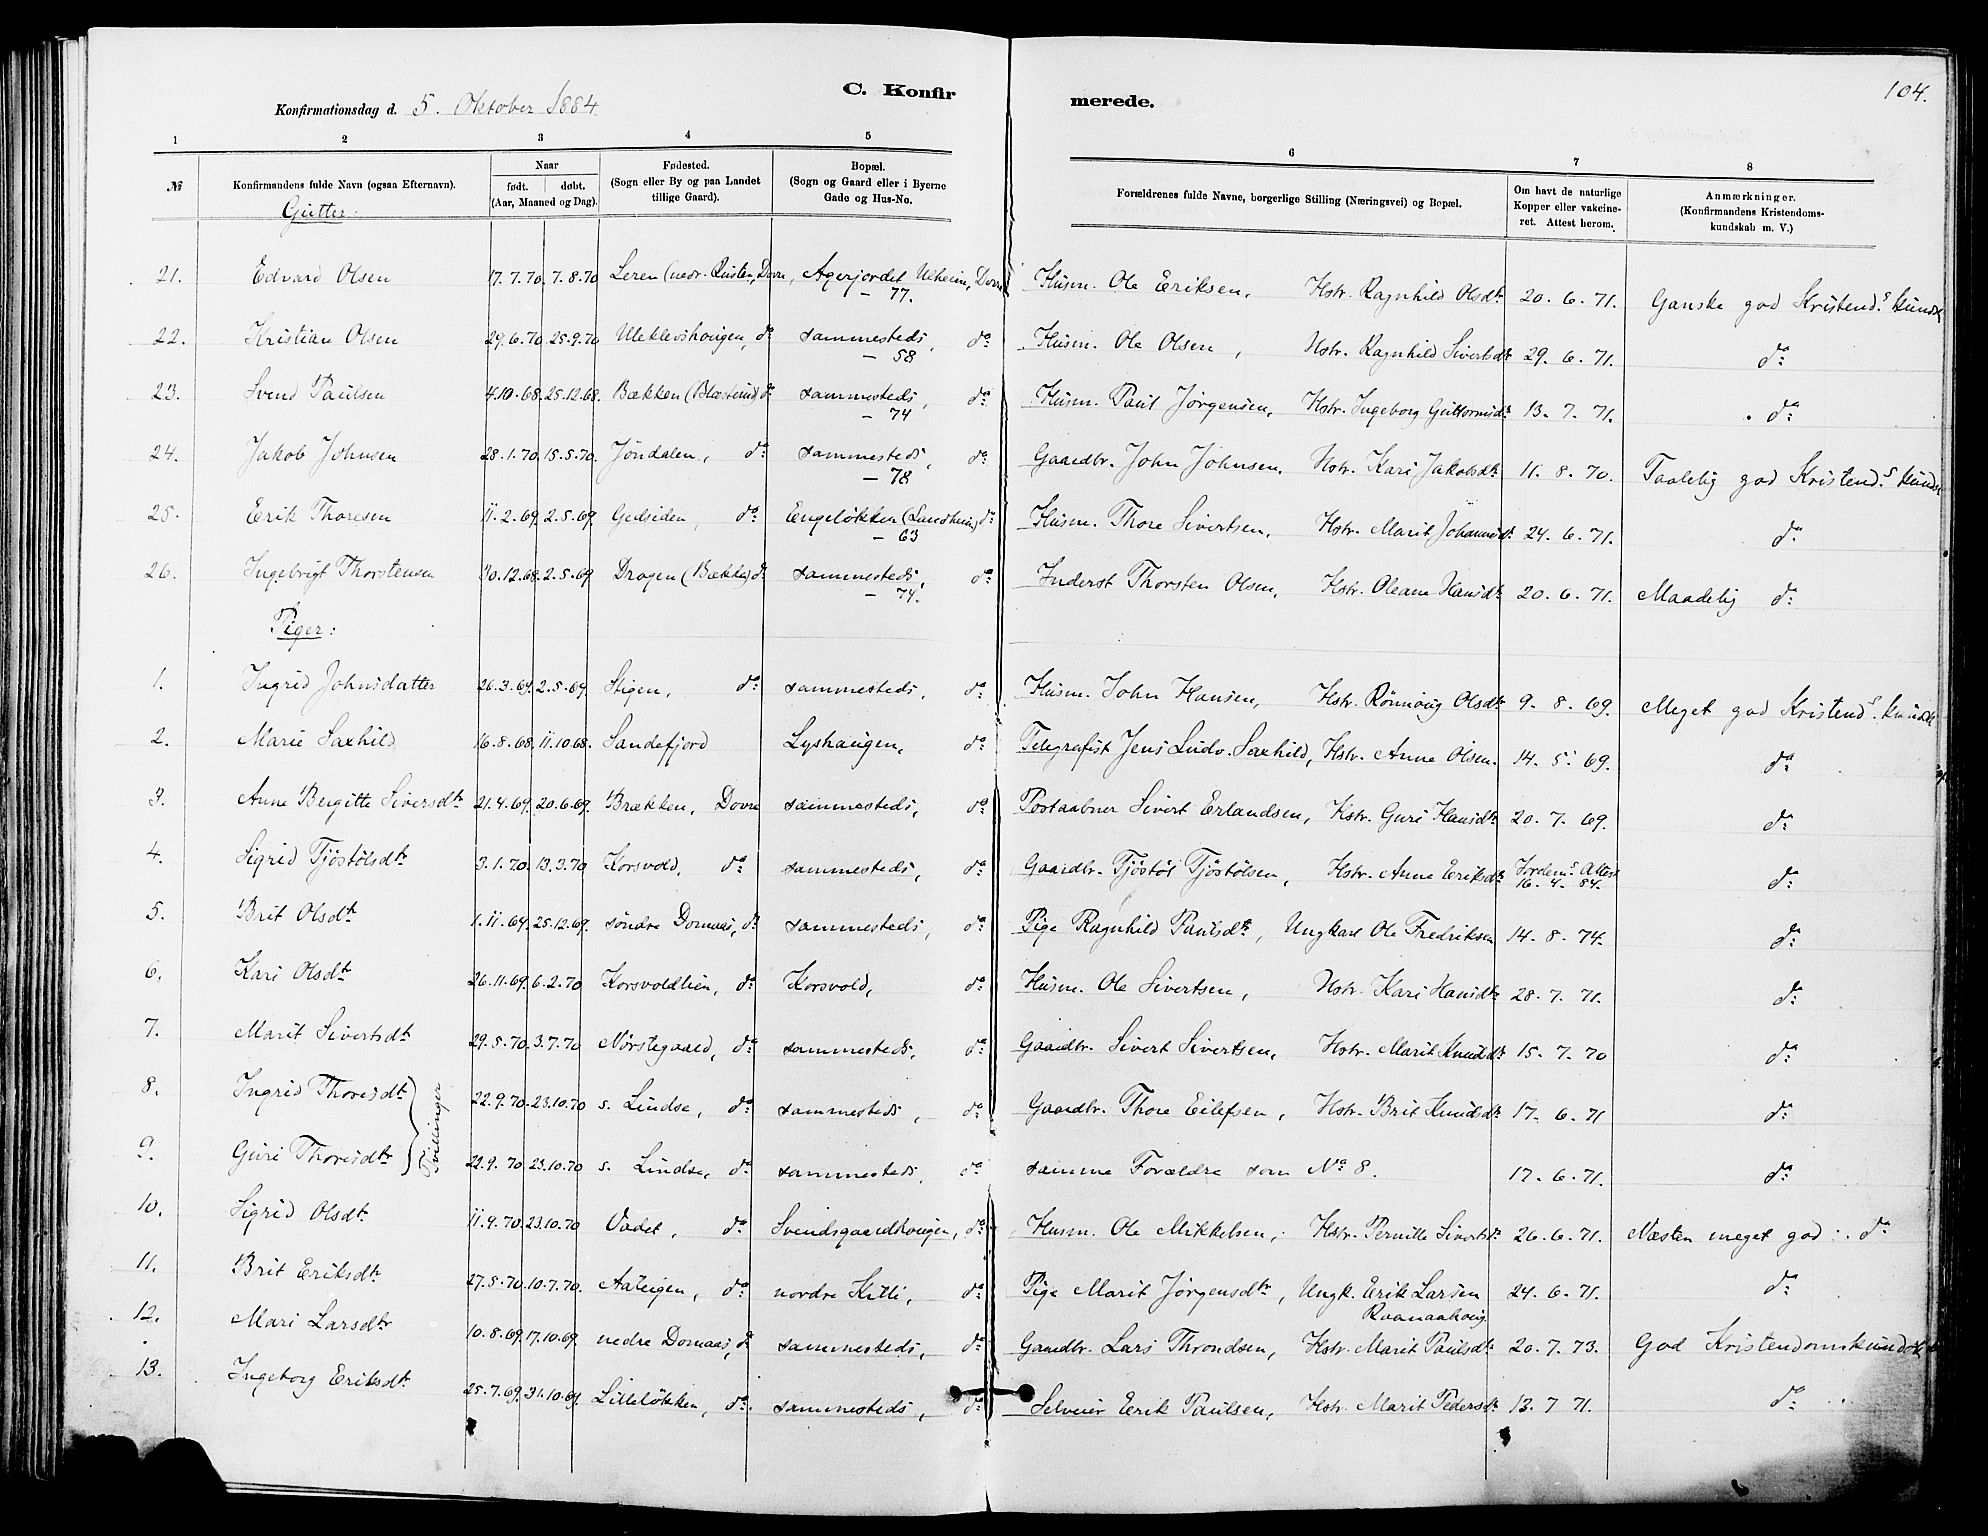 104.
C. Konfirmerede.
Konfirmationsdag d. 5. Oktober 1884
1 2 3 4 5 6 7 8
№ Konfirmandens fulde Navn (ogsaa Efternavn). Naar født. døbt. (Aar, Maaned og Dag). Fødested. (Sogn eller By og paa Landet tillige Gaard). Bopæl. (Sogn og Gaard eller i Byerne Gade og Hus-No. Forældrenes fulde Navne, borgerlige Stilling (Næringsvei) og Bopæl. Om havt de naturlige Kopper eller vakcineret. Attest herom. Anmærkninger. (Konfirmandens Kristendomskundskab m. V.)
Gutter:
21. Edvard Olsen 17.7.70. 7.8.70 Leren (nedr. Rusten, Dovre, Agerjordet Ulheim, Dovre – 77. Husm. Ole Eriksen, Hstr. Ragnhild Olsdtr 20. 6. 71. Ganske god Kristend.s kundsk
22. Kristian Olsen 29.6.70 25.9.70 Uleklevshougen, do sammesteds, do – 58 Husm. Ole Olsen, Hstr. Ragnhild Sivertsdtr 29. 6. 71. do
23. Svend Paulsen 4.10.68. 25.12.68. Bækken (Blæsterud) do sammesteds, do – 74 Husm. Paul Jørgensen, Hstr. Ingeborg Guttormsdtr 13. 7. 71. do
24. Jakob Johnsen 28.1.70. 15.5.70. Jøndalen, do sammesteds, do – 78 Gaardbr. John Johnsen, Hstr. Kari Jakobsdtr 11. 8. 70. Taalelig god Kristend.s kundsk
25. Erik Thoresen 11.2.69. 2.5.69. Gedsiden, do Engeløkken (Landheim) do – 63 Husm. Thore Sivertsen, Hstr. Marit Johannsdtr 24. 6. 71. do
26. Ingebrigt Thorstensen 30.12.68. 2.5.69 Dragen (Bække) do sammesteds, do – 74. Inderst Thorsten Olsen, Hstr. Oleane Hansdtr 20. 6. 71. Maadelig do
Piger:
1. Ingrid Johnsdatter 26.3.69. 2.5.69. Stigen, do sammesteds, do Husm. John Hansen, Hstr. Rønnoug Olsdtr 9. 8. 69. Meget god Kristend.s kundsk
2. Marie Saxhild 16.8.68. 11.10.68. Sandefjord Lyshaugen, do Telegrafist Jens Ludv. Saxhild, Hstr. Anne Olsen. 14. 5. 69. do
3. Anne Bergitte Siversdtr 21.4.69. 20.6.69. Brækken, Dovre sammesteds, do Postaabner Sivert Erlandsen, Hstr. Guri Hansdtr 20. 7. 69. do
4. Sigrid Tjøstølsdtr 3.1.70. 13.3.70 Korsvold, do sammesteds, do Gaardbr. Tjøstøl Tjøstølsen, Hstr. Anne Eriksdtr Attest 16. 4. 84. do
5. Brit Olsdtr 1.11.69. 25.12.69. søndre Domaas, do sammesteds, do Pige Ragnhild Paulsdtr, Ungkarl Ole Fredriksen 14. 8. 74. do
6. Kari Olsdtr 26.11.69. 6.2.70 Korsvoldlien, do Korsvold, do Husm. Ole Sivertsen, Hstr. Kari Hansdtr 28. 7. 71. do
7. Marit Sivertsdtr 29.5.70. 3.7.70 Nørstegaard, do sammesteds, do Gaardbr. Sivert Sivertsen, Hstr. Marit Knudsdtr 15. 7. 70 do
8. Ingrid Thoresdtr 22.9.70. 23.10.70 s. Lindse, do sammesteds, do Gaardbr. Thore Eilefsen, Hstr. Brit Knudsdtr 17. 6. 71 do
Tvillinger
9. Guri Thoresdtr 22.9.70 23.10.70 s. Lindse, do sammesteds, do samme Forældre som No 8. 17. 6. 71. do
10. Sigrid Olsdtr 11.9.70. 23.10.70 Vadet, do Svendsgaardhougen, do Husm. Ole Mikkelsen, Hstr. Pernille Sivertsdtr 26. 6. 71. Næsten meget god do
11. Brit Eriksdtr 27.5.70. 10.7.70. Aateigen, do nordre Kitti, do Pige Marit Jørgensdtr, Ungk. Erik Larsen Raanaahoug 24. 6. 71. do
12. Mari Larsdtr 10.8.69. 17.10.69. nedre Domaas, do sammesteds, do Gaardbr. Lars Throndsen, Hstr. Marit Paulsdtr 20. 7. 73. God Kristendomskundsk
13. Ingeborg Eriksdtr. 25.7.69. 31.10.69. Lilleløkken, do sammesteds, do Selveier Erik Paulsen, Hstr. Marit Pedersdtr 13. 7 71. do